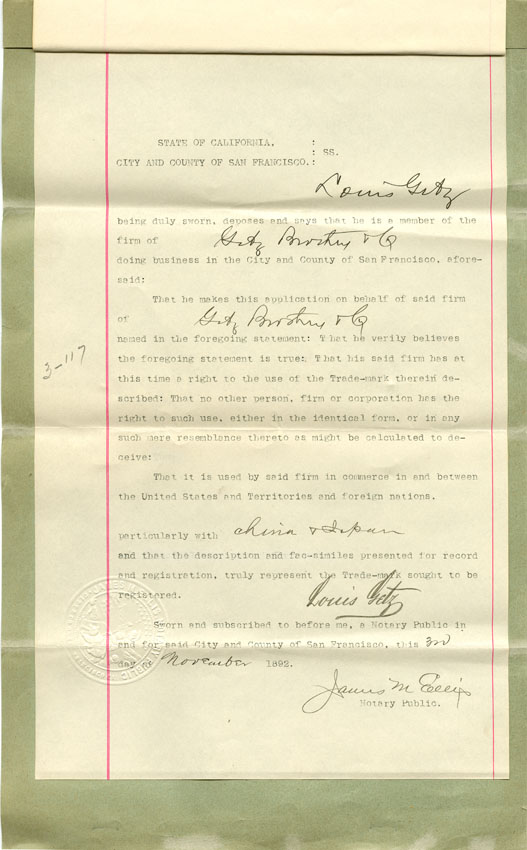 STATE OF CALIFORNIA, :
: SS.
CITY AND COUNTY OF SAN FRANCISCO.:
Louis Getz
being duly sworn, deposes and says that he is a member of the
firm of Getz Brothers & Co
doing business in the City and County of San Francisco, afore-
said:
That he makes this application on behalf of said firm
of Getz Brothers & Co
named in the foregoing statement: That he verily believes
the foregoing statement is true: That his said firm has at
this time a right to the use of the Trade-mark therein de-
scribed: That no other person, firm or corporation has the
right to such use, either in the identical form, or in any
such nere resemblance thereto as might be calculated to de-
ceive:
That it is used by said firm in commerce in and between
the United States and Territories and foreign nations,
particularly with China & Japan
and that the description and fac-similes presented for record
and registration, truly represent the Trade-mark sought to be
registered.
Louis Getz
Sworn and subscribed to before me, a Notary Public in
and for said City and County of San Francisco, this 3rd
day of November 1892.
James M Ellis
Notary Public.
3-117